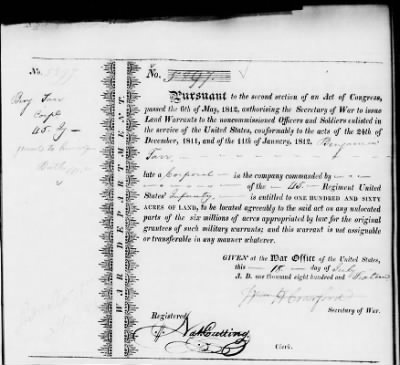 No. 5897.
Benj Tarr
Corpl
45. Ig —
WAR DEPARTMENT
No. 5897.
Pursuant to the second section of an Act of Congress,
passed the 6th of May, 1812, authorising the Secretary of War to issue
Land Warrants to the noncommissioned Officers and Soldiers enlisted in
the service of the United States, conformably to the acts of the 24th of
December, 1811, and of the 11th of January, 1812. Benjamin
Tarr
late a Corporal in the company commanded by
of the 45. Regiment United
States' Infantry, is entitled to ONE HUNDRED AND SIXTY
ACRES OF LAND, to be located agreeably to the said act on any unlocated
parts of the six millions of acres appropriated by law for the original
grantees of such military warrants; and this warrant is not assignable
or transferable in any manner whatever.
GIVEN at the War Office of the United States,
this 18 day of July
A. D. one thousand eight hundred and Sixteen
Wm H Crawford
Secretary of War.
Registered
Nat Cutting
Clerk.